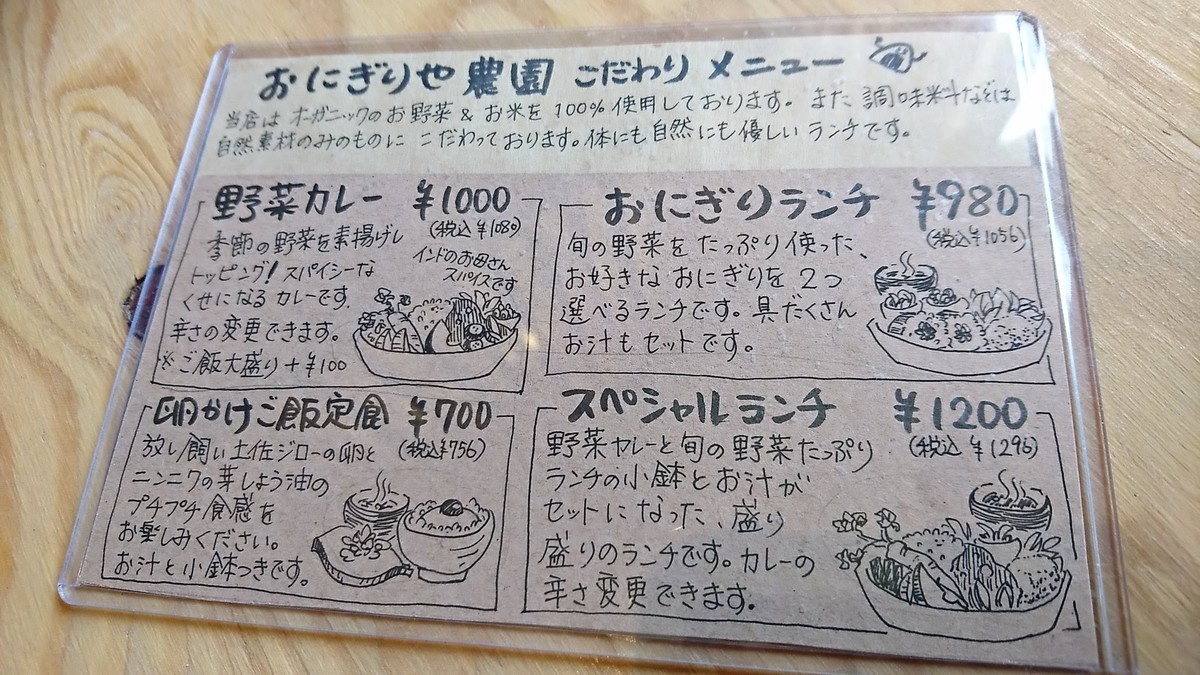 おにぎりや農園 こだわり メニュー
当店は オーガニックのお野菜 & お米を 100% 使用しております。また 調味料などは
自然素材のみのものに こだわっております。体にも自然にも優しい ランチです。
野菜カレー ¥1000
(税込 ¥1080)
季節の野菜を素揚げし
トッピング! スパイシーな
くせになる カレーです。
辛さの変更できます。
※ご飯大盛り+¥100
インドのお母さん
スパイスです
おにぎりランチ ¥980
(税込 ¥1056)
旬の野菜を たっぷり使った、
お好きな おにぎりを 2つ
選べるランチです。具だくさん
お汁もセットです。
卵かけご飯定食 ¥700
(税込¥756)
放し飼い 土佐ジローの卵と
ニンニクの芽しょう油の
プチプチ食感を
お楽しみください。
お汁と小鉢つきです。
スペシャルランチ ¥1200
(税込 ¥1296)
野菜カレーと旬の野菜たっぷり
ランチの小鉢とお汁が
セットになった、盛り
盛りのランチです。カレーの
辛さ変更できます。